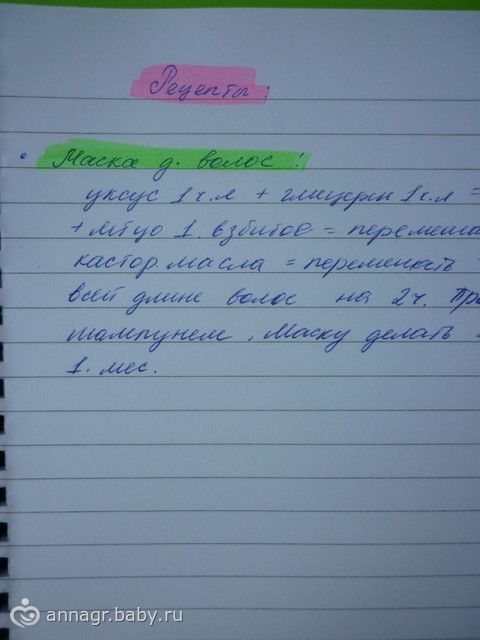 Рецепты:
• Маска д. волос!
уксус 1 ч.л + глицерин 1 ч.л =
+ яйцо 1. взбитое = перемеша
кастор. масла = перемешать
всей длине волос на 2 ч. Пр
шампунем. Маску делать
1. мес.
annagr.baby.ru